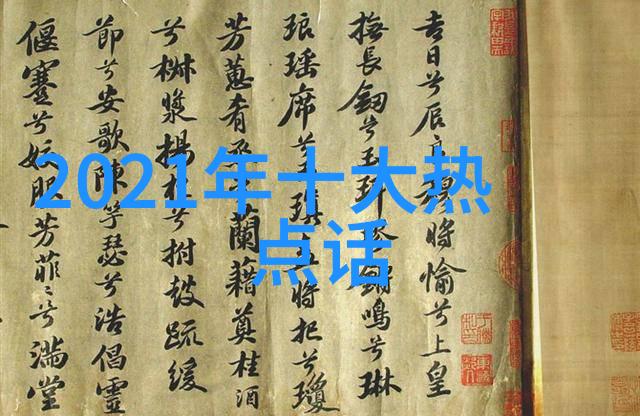 吉日兮辰良穆將愉兮上皇
撫長劒兮玉珥璆鏘鳴兮琳
琅瑶席兮玉瑱盍將把兮瓊
芳蕙肴蒸兮蘭藉奠桂酒
兮椒漿揚枹兮拊鼓疏緩
節兮安歌陳竽瑟兮浩倡靈
偃蹇兮姣服芳菲〻兮滿堂
2021年十大热
点话